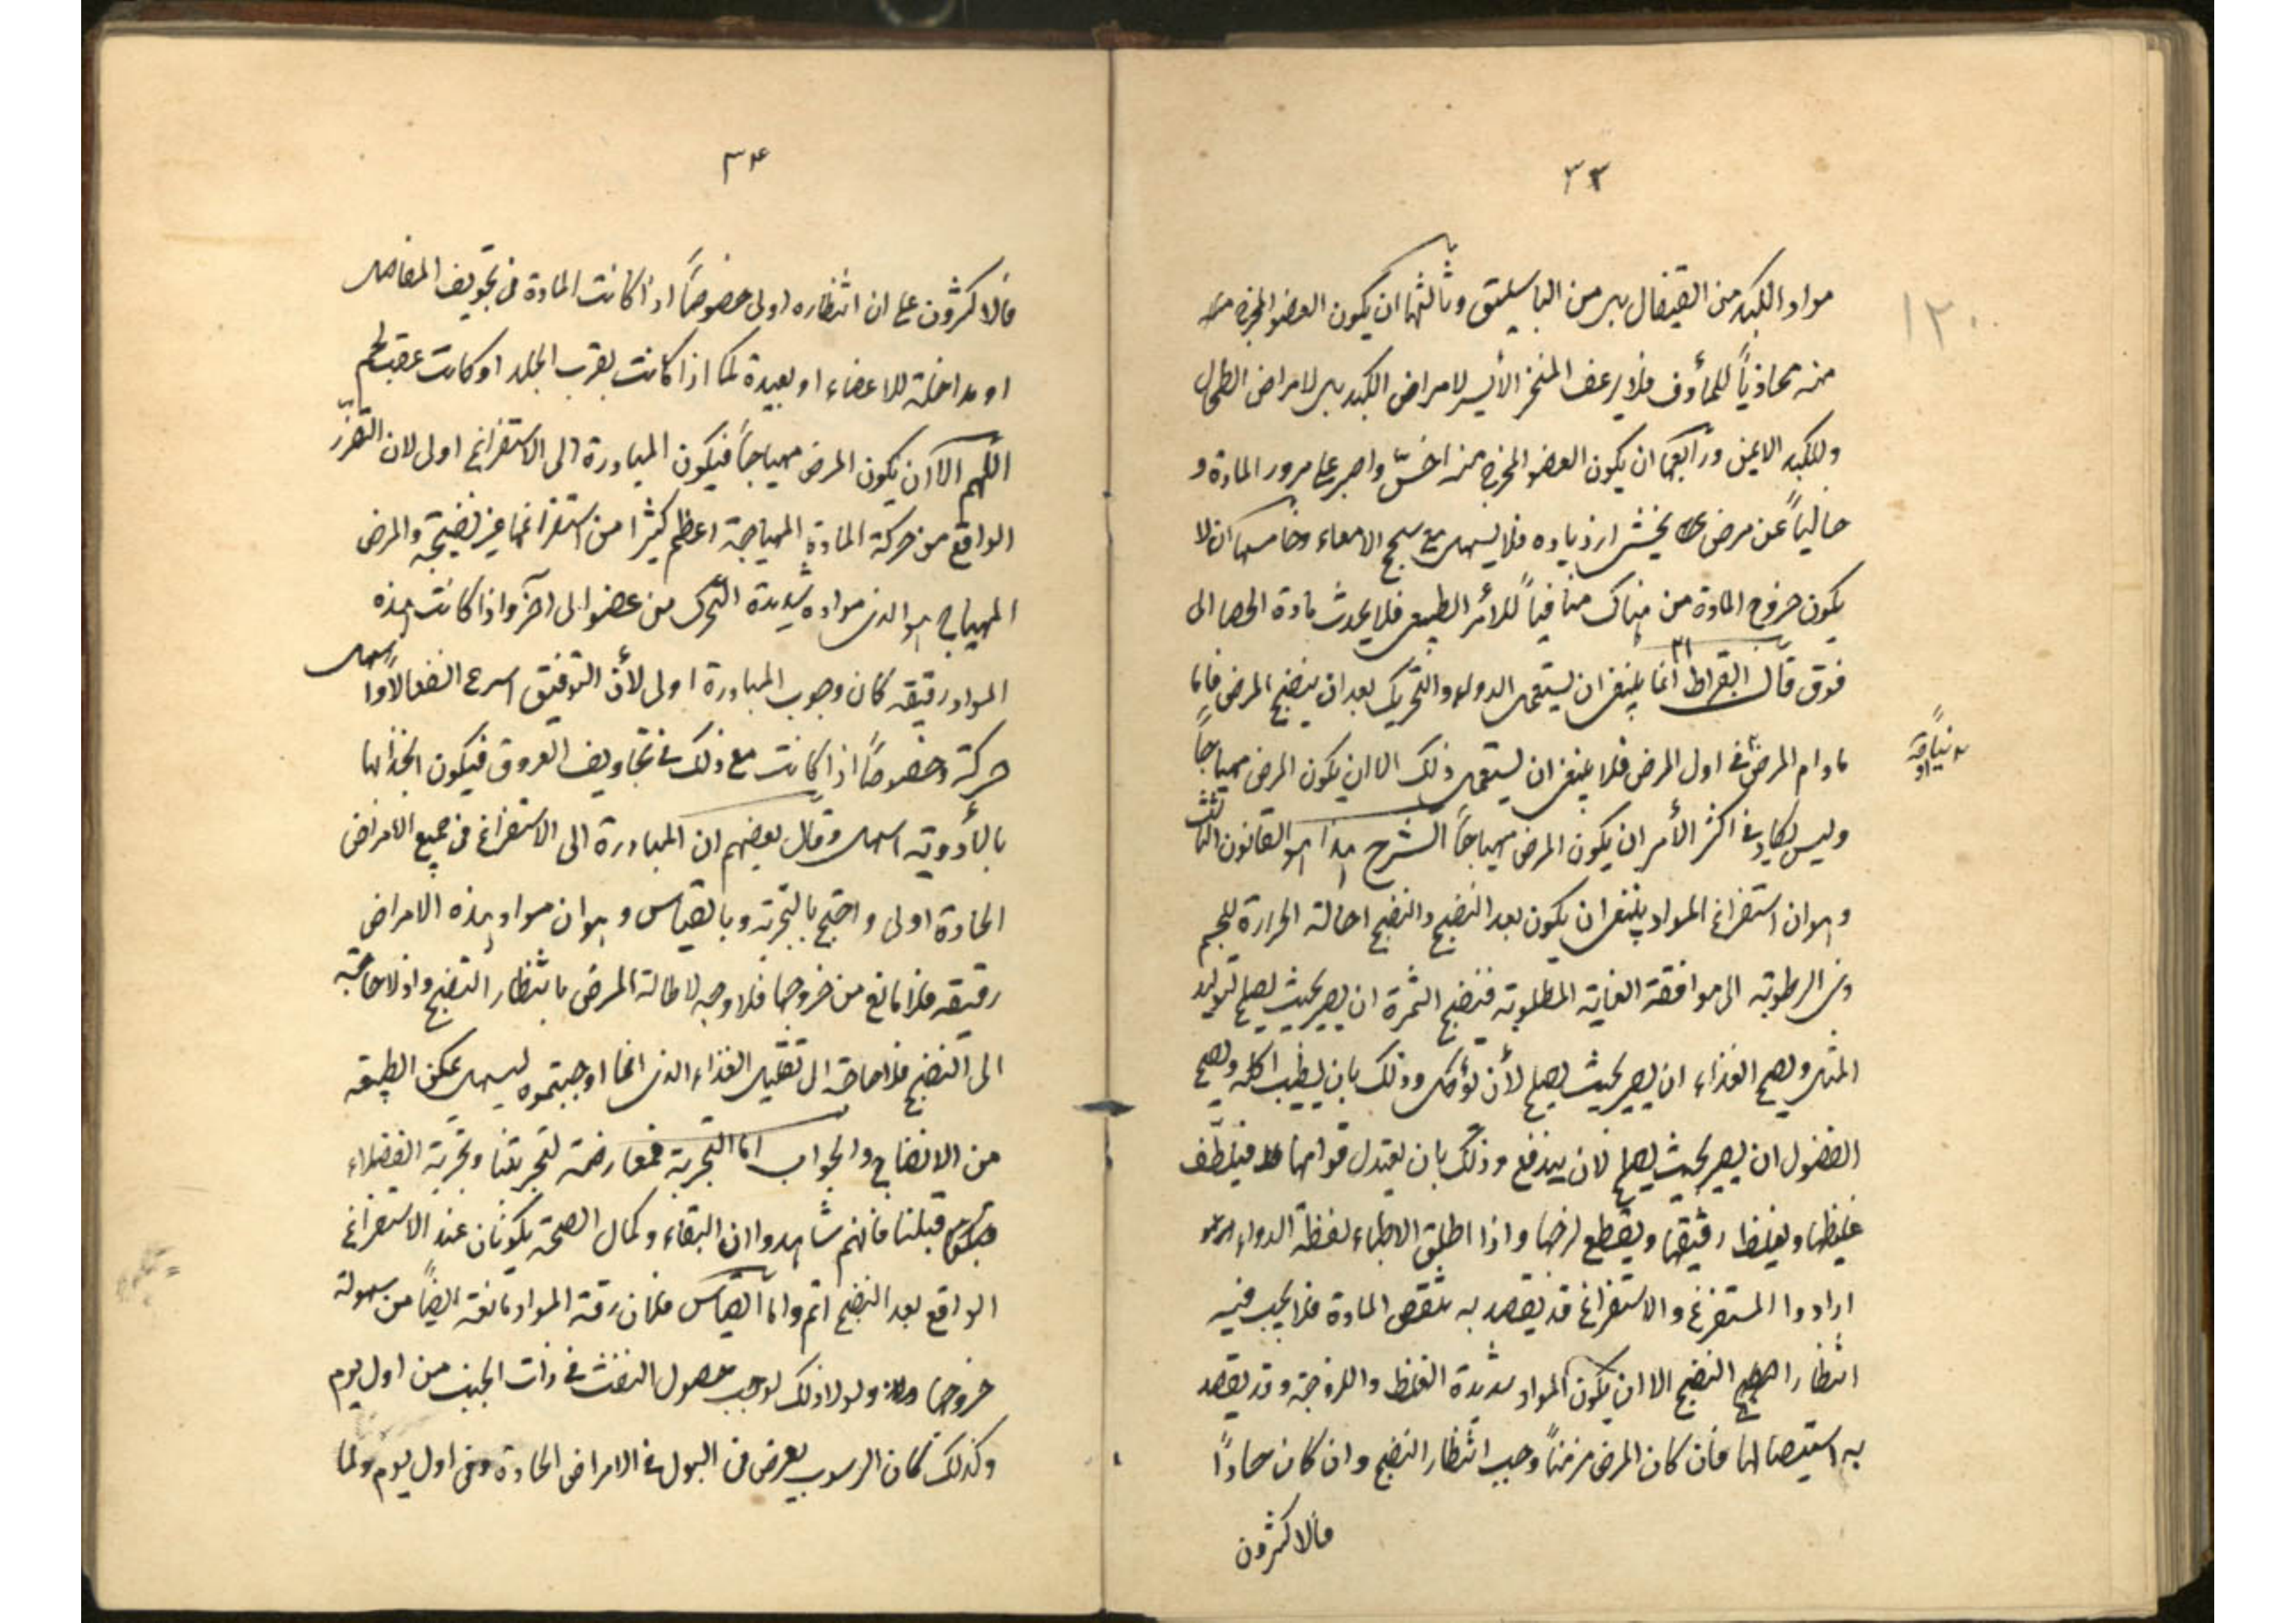 ٣٣
مواد الكبد من القيفال بل من الباسليق وثالثها ان يكون العضو المخرج
منه محاذياً للمأوف فلا يرعف المنخر الأيسر لامراض الكبد بل لامراض الطحال
وللكبد الايمن ورابعها ان يكون العضو المخرج منه اخسّ واصبر على مرور المادة و
خالياً عن مرض يخشى ازدياده فلا يسهل مع سحج الامعاء وخامسها ان لا
يكون خروج المادة من هناك منافياً للأمر الطبيعى فلا يحدث مادة الحصا الى
فوق قال ابقراط انما ينبغى ان يستعمل الدواء والتحريك بعد ان ينضج المرض فاما
مادام المرض فى اول المرض فلا ينبغى ان يستعمل ذلك الا ان يكون المرض مهياجاً
وليس يكاد فى اكثر الأمر ان يكون المرض مهياجاً الشرح هذا هو القانون الثالث
وهو ان استفراغ المواد ينبغى ان يكون بعد النضج والنضج احالة الحرارة للجسم
ذى الرطوبة الى موافقة الغاية المطلوبة فنضج الثمرة ان يصير بحيث يصلح لتوليد
المثل ونضج الغذاء ان يصير بحيث يصلح لأن يؤكل وذلك بان يطيب اكله ونضج
الفضول ان يصير بحيث يصلح لان يندفع وذلك بان يعتدل قوامها فيلطّف
غليظها ويغلظ رقيقها ويقطع لزجها واذا اطلق الاطباء لفظة الدواء
ارادوا المستفرغ والاستفراغ قد يقصد به نقص المادة فلا يجب فيه
انتظار النضج الا ان يكون المواد شديدة الغلظ واللزوجة وقد يقصد
به استيصالها فان كان المرض مزمناً وجب انتظار النضج وان كان حاداً
فالاكثرون
١٢٠
٣٤
فالاكثرون على ان انتظاره اولى خصوصاً اذا كانت المادة فى تجويف المفاصل
او مداخلة للاعضاء او بعيدة لما اذا كانت بقرب الجلد او كانت عقب
اللهم الا ان يكون المرض مهياجاً فيكون المبادرة الى الاستفراغ اولى لان التضرّر
الواقع من حركة المادة المهياجة اعظم كثيرا من استفراغها غير نضيجة والمرض
المهياج هو الذى مواده شديدة التحرك من عضو الى آخر واذا كانت هذه
المواد رقيقة كان وجوب المبادرة اولى لأن الرقيق اسرع انفعالا واسهل
حركة وخصوصاً اذا كانت مع ذلك فى تجاويف العروق فيكون انجذابها
بالأدوية اسهل وقال بعضهم ان المبادرة الى الاستفراغ فى جميع الامراض
الحادة اولى واحتج بالتجربة وبالقياس وهو ان مواد هذه الامراض
رقيقة فلا مانع من خروجها فلا وجه لاطالة المرض بانتظار النضج واذ لا حاجة
الى النضج فلا حاجة الى تقليل الغذاء الذى انما اوجبتموه ليسهل تمكن الطبيعة
من الانضاج والجواب اما التجربة فمعارضة لتجربتنا وتجربة الفضلاء
قبلنا فانهم شاهدوا ان البقاء وكمال الصحة يكونان عند الاستفراغ
الواقع بعد النضج اتم واما القياس فلان رقة المواد مانعة ايضاً من سهولة
خروجها ولولا ذلك لوجب حصول النفث فى ذات الجنب من اول يوم
وكذلك كان الرسوب يعرض فى البول فى الامراض الحادة فى اول يوم ولما